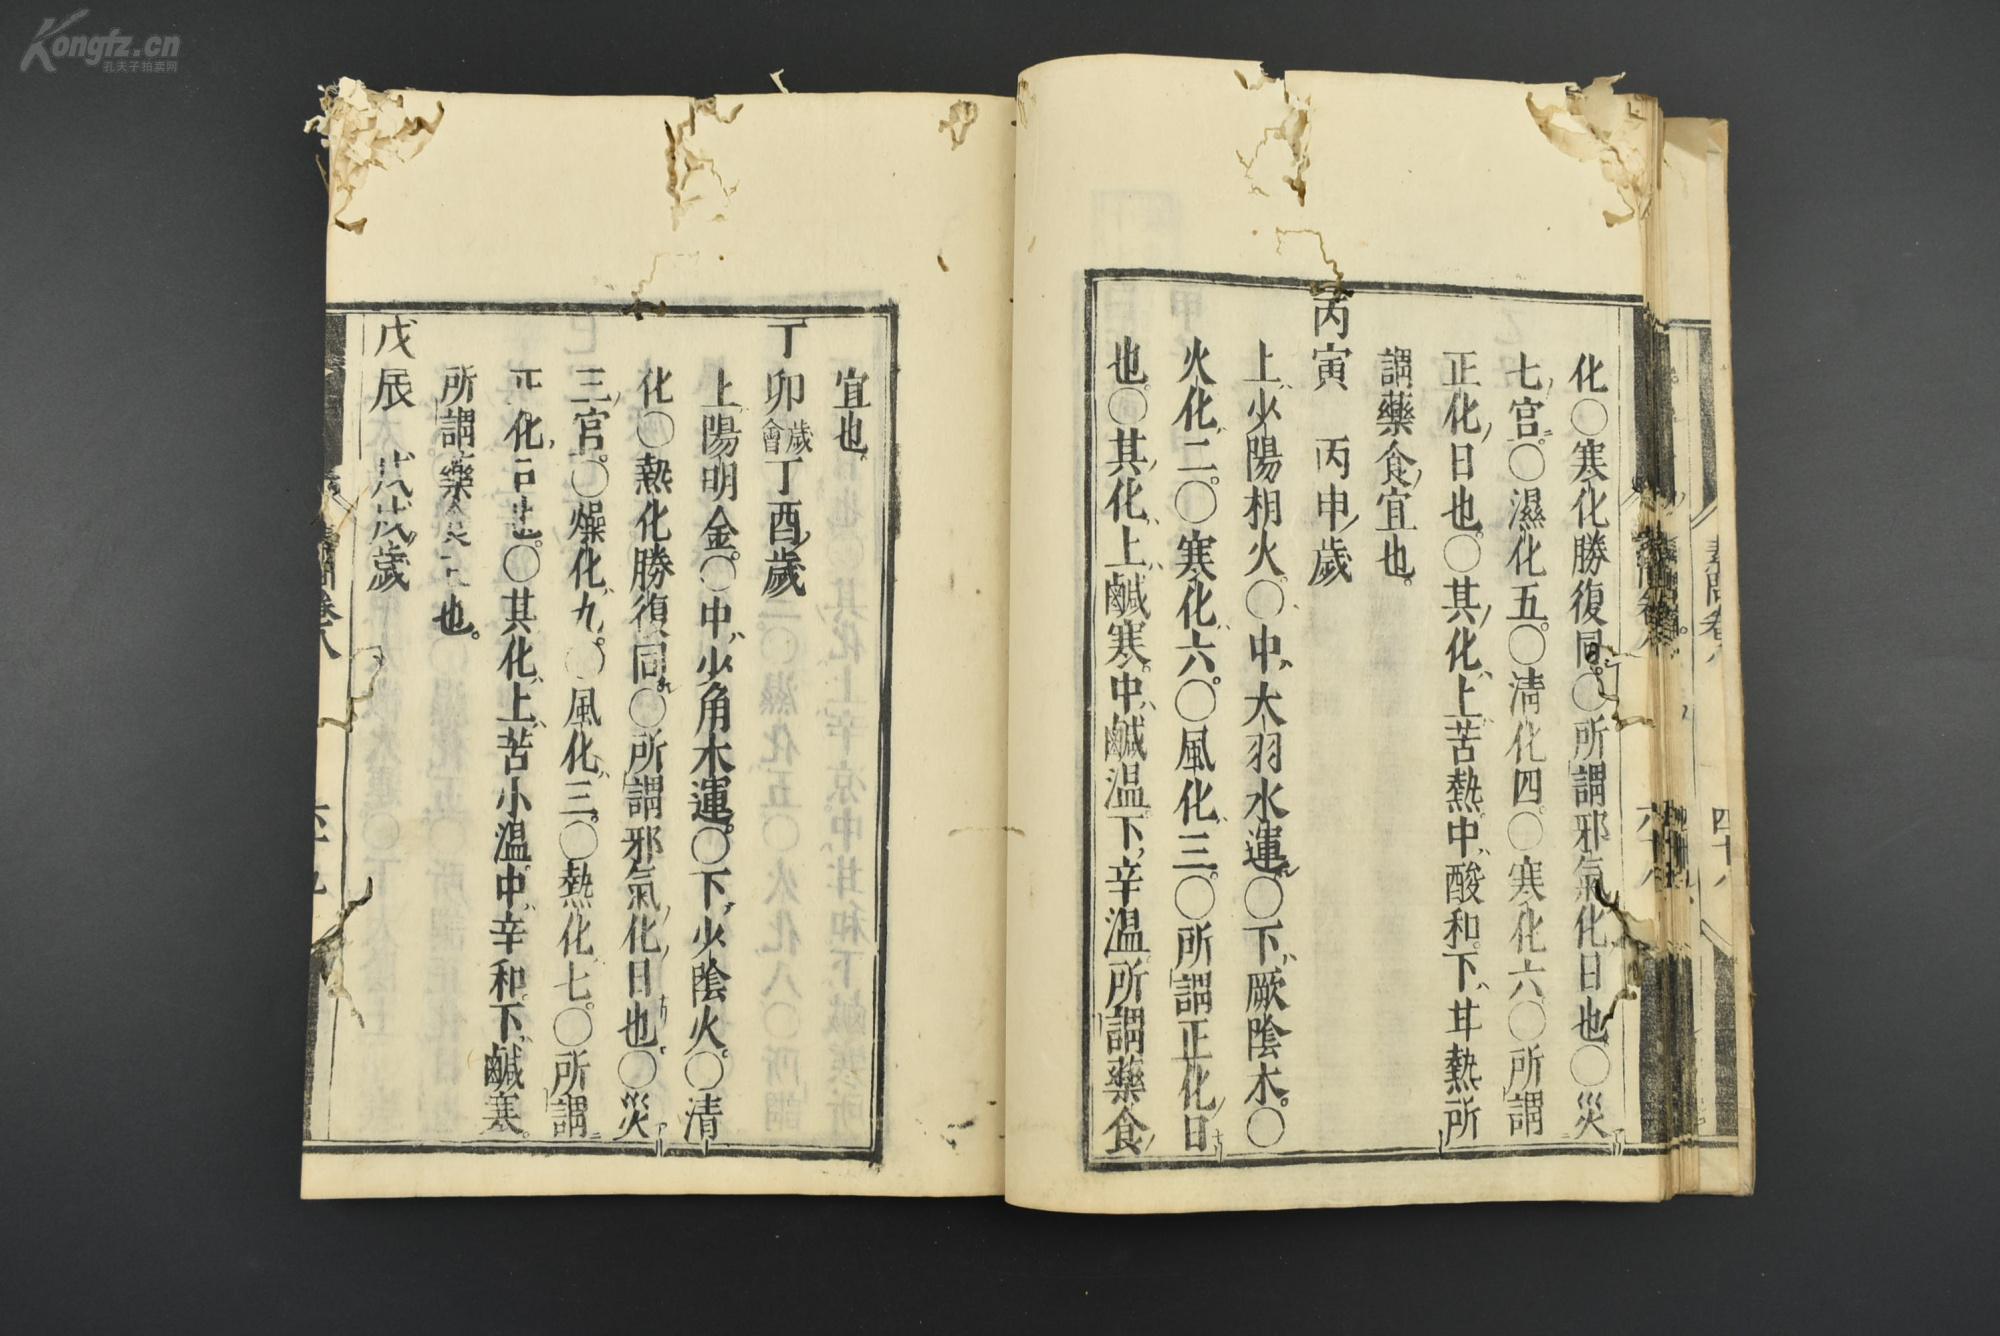 Kongfz.cn
孔夫子拍卖网
化○寒化勝復同○所謂邪氣化日也○災
七宮○濕化五○清化四○寒化六○所謂
正化日也○其化上苦熱中酸和下甘熱所
謂藥食宜也
丙寅 丙申歲
上少陽相火○中大羽水運○下厥陰木○
火化二○寒化六○風化三○所謂正化日
也○其化上鹹寒中鹹温下辛温所謂藥食
宜也
丁卯歲會丁酉歲
上陽明金○中少角木運○下少陰火○清
化○熱化勝復同○所謂邪氣化日也○災
三宮○燥化九○風化三○熱化七○所謂
正化日也○其化上苦小温中辛和下鹹寒
所謂藥食宜也
戊辰 戊戌歲
素問卷八
六十八
四十八